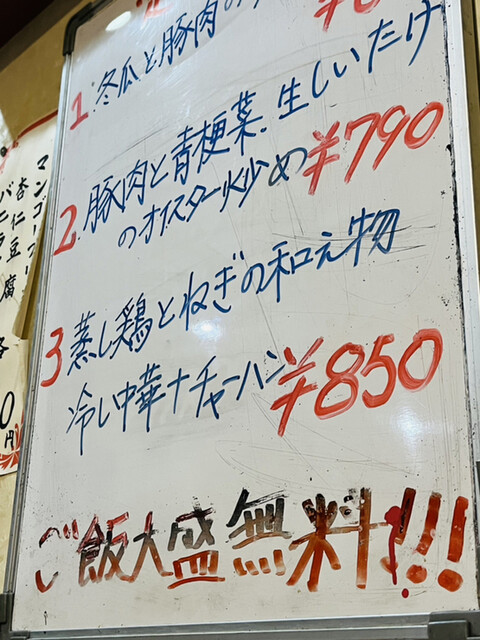 1. 冬瓜と豚肉の
2. 豚肉と青梗菜.生しいたけ
のオイスター炒め ¥790
3 蒸し鶏とねぎの和え物
冷し中華+チャーハン ¥850
ご飯大盛無料!!!
マンゴー
杏仁豆腐
バニラ
0円